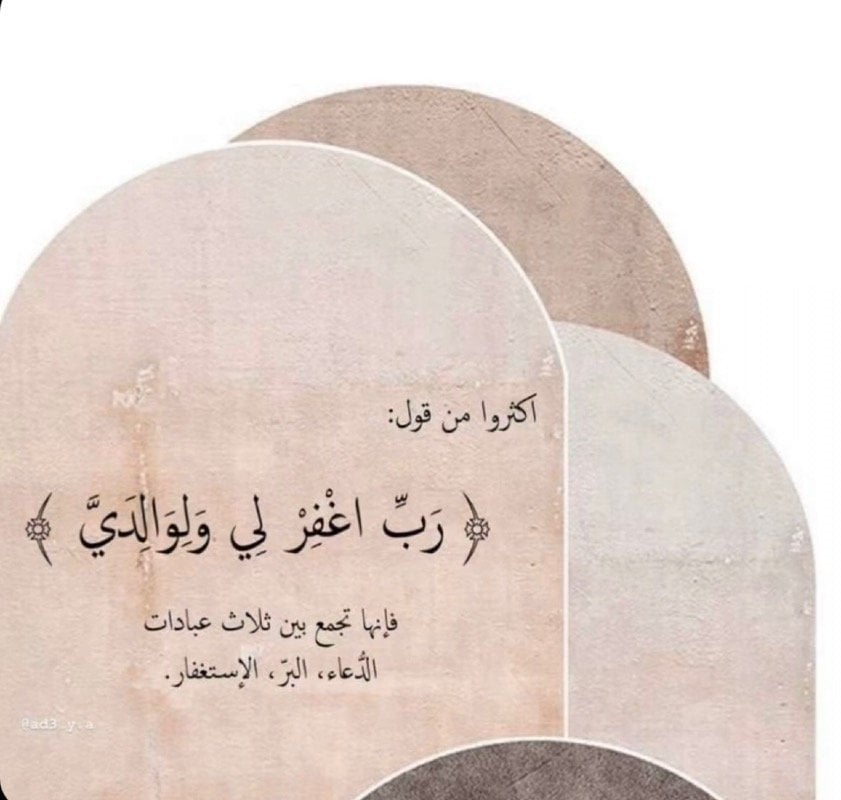 اكثروا من قول:
﴿ رَبِّ اغْفِرْ لِي وَلِوَالِدَيَّ ﴾
فإنها تجمع بين ثلاث عبادات
الدُّعاء، البرّ، الإستغفار.
@ad3_y.a